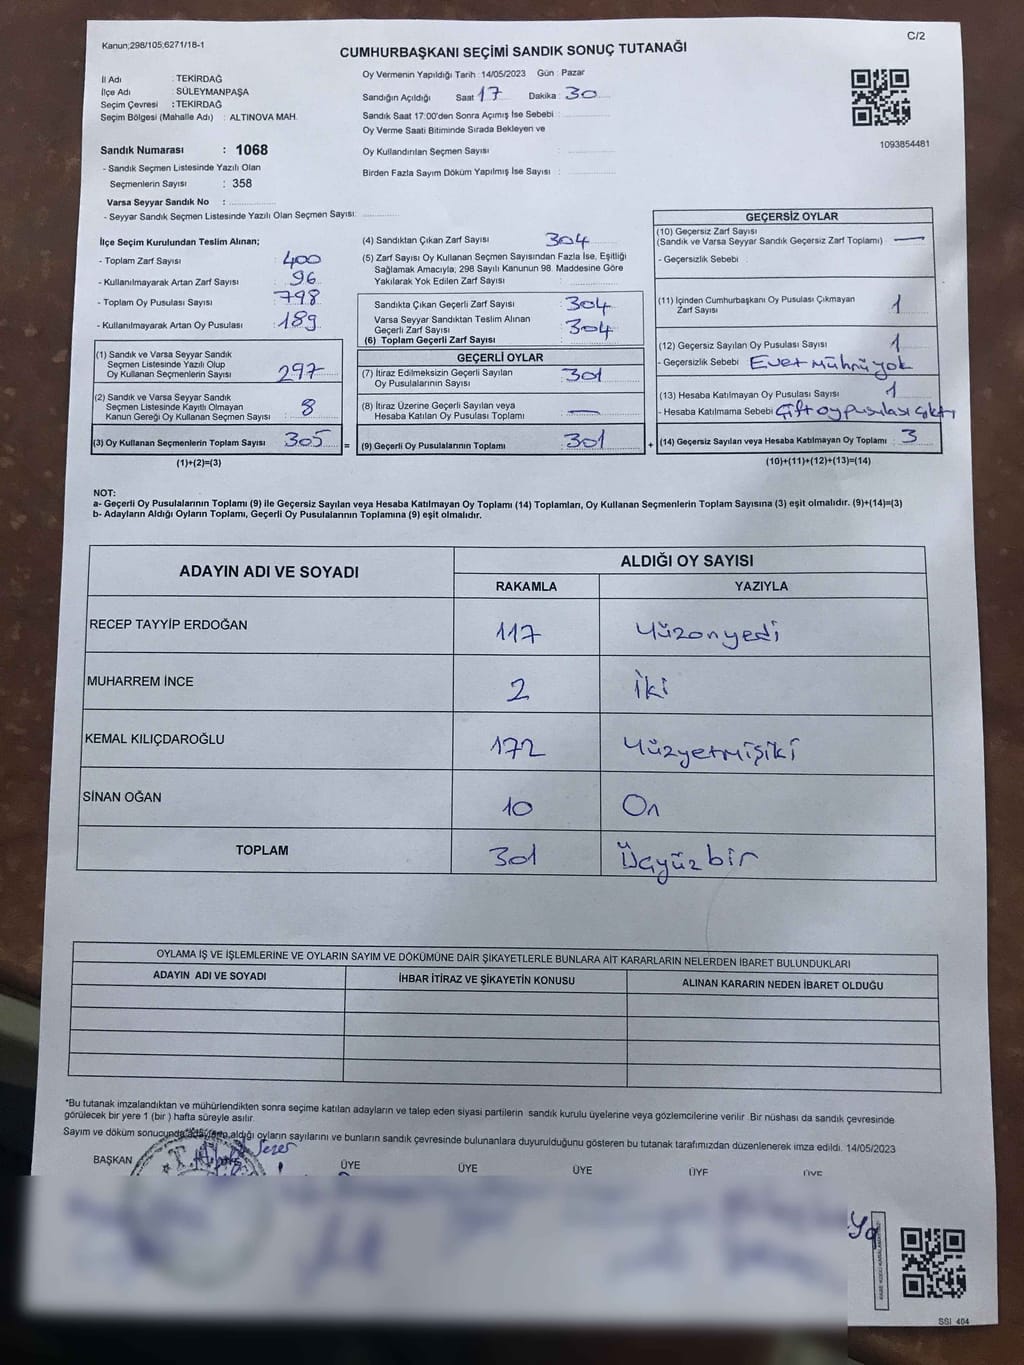 Kanun;298/105;6271/18-1
C/2
CUMHURBAŞKANI SEÇİMİ SANDIK SONUÇ TUTANAĞI
İl Adı : TEKİRDAĞ
İlçe Adı : SÜLEYMANPAŞA
Seçim Çevresi : TEKİRDAĞ
Seçim Bölgesi (Mahalle Adı) : ALTINOVA MAH.
Sandık Numarası : 1068
- Sandık Seçmen Listesinde Yazılı Olan
Seçmenlerin Sayısı : 358
Varsa Seyyar Sandık No :
- Seyyar Sandık Seçmen Listesinde Yazılı Olan Seçmen Sayısı:
Oy Vermenin Yapıldığı Tarih :14/05/2023 Gün : Pazar
Sandığın Açıldığı Saat 17 Dakika 30
Sandık Saat 17:00'den Sonra Açımış İse Sebebi :
Oy Verme Saati Bitiminde Sırada Bekleyen ve
Oy Kullandırılan Seçmen Sayısı :
Birden Fazla Sayım Döküm Yapılmış İse Sayısı :
1093854481
İlçe Seçim Kurulundan Teslim Alınan;
- Toplam Zarf Sayısı : 400
- Kullanılmayarak Artan Zarf Sayısı : 96
- Toplam Oy Pusulası Sayısı : 798
- Kullanılmayarak Artan Oy Pusulası : 189
(1) Sandık ve Varsa Seyyar Sandık
Seçmen Listesinde Yazılı Olup
Oy Kullanan Seçmenlerin Sayısı : 297
(2) Sandık ve Varsa Seyyar Sandık
Seçmen Listesinde Kayıtlı Olmayan
Kanun Gereği Oy Kullanan Seçmen Sayısı : 8
(3) Oy Kullanan Seçmenlerin Toplam Sayısı : 305 =
(1)+(2)=(3)
(4) Sandıktan Çıkan Zarf Sayısı : 304
(5) Zarf Sayısı Oy Kullanan Seçmen Sayısından Fazla İse, Eşitliği
Sağlamak Amacıyla; 298 Sayılı Kanunun 98. Maddesine Göre
Yakılarak Yok Edilen Zarf Sayısı :
Sandıkta Çıkan Geçerli Zarf Sayısı : 304
Varsa Seyyar Sandıktan Teslim Alınan
Geçerli Zarf Sayısı : 304
(6) Toplam Geçerli Zarf Sayısı
GEÇERLİ OYLAR
(7) İtiraz Edilmeksizin Geçerli Sayılan
Oy Pusulalarının Sayısı : 301
(8) İtiraz Üzerine Geçerli Sayılan veya
Hesaba Katılan Oy Pusulası Toplamı : —
(9) Geçerli Oy Pusulalarının Toplamı : 301 +
GEÇERSİZ OYLAR
(10) Geçersiz Zarf Sayısı
(Sandık ve Varsa Seyyar Sandık Geçersiz Zarf Toplamı) : —
- Geçersizlik Sebebi :
(11) İçinden Cumhurbaşkanı Oy Pusulası Çıkmayan
Zarf Sayısı : 1
(12) Geçersiz Sayılan Oy Pusulası Sayısı : 1
- Geçersizlik Sebebi : Evet Mührü yok
(13) Hesaba Katılmayan Oy Pusulası Sayısı : 1
- Hesaba Katılmama Sebebi : Çift oy pusulası çıktı
(14) Geçersiz Sayılan veya Hesaba Katılmayan Oy Toplamı : 3
(10)+(11)+(12)+(13)=(14)
NOT:
a- Geçerli Oy Pusulalarının Toplamı (9) ile Geçersiz Sayılan veya Hesaba Katılmayan Oy Toplamı (14) Toplamları, Oy Kullanan Seçmenlerin Toplam Sayısına (3) eşit olmalıdır. (9)+(14)=(3)
b- Adayların Aldığı Oyların Toplamı, Geçerli Oy Pusulalarının Toplamına (9) eşit olmalıdır.
ADAYIN ADI VE SOYADI
ALDIĞI OY SAYISI
RAKAMLA YAZIYLA
RECEP TAYYİP ERDOĞAN 117 Yüzonyedi
MUHARREM İNCE 2 İki
KEMAL KILIÇDAROĞLU 172 Yüzyetmişiki
SİNAN OĞAN 10 On
TOPLAM 301 Üçyüz bir
OYLAMA İŞ VE İŞLEMLERİNE VE OYLARIN SAYIM VE DÖKÜMÜNE DAİR ŞİKAYETLERLE BUNLARA AİT KARARLARIN NELERDEN İBARET BULUNDUKLARI
ADAYIN ADI VE SOYADI İHBAR İTİRAZ VE ŞİKAYETİN KONUSU ALINAN KARARIN NEDEN İBARET OLDUĞU
*Bu tutanak imzalandıktan ve mühürlendikten sonra seçime katılan adayların ve talep eden siyasi partilerin sandık kurulu üyelerine veya gözlemcilerine verilir .Bir nüshası da sandık çevresinde
görülecek bir yere 1 (bir ) hafta süreyle asılır.
Sayım ve döküm sonucunda adayların aldığı oyların sayılarını ve bunların sandık çevresinde bulunanlara duyurulduğunu gösteren bu tutanak tarafımızdan düzenlenerek imza edildi. 14/05/2023
BAŞKAN ÜYE ÜYE ÜYE ÜYE ÜYE
SSI 404